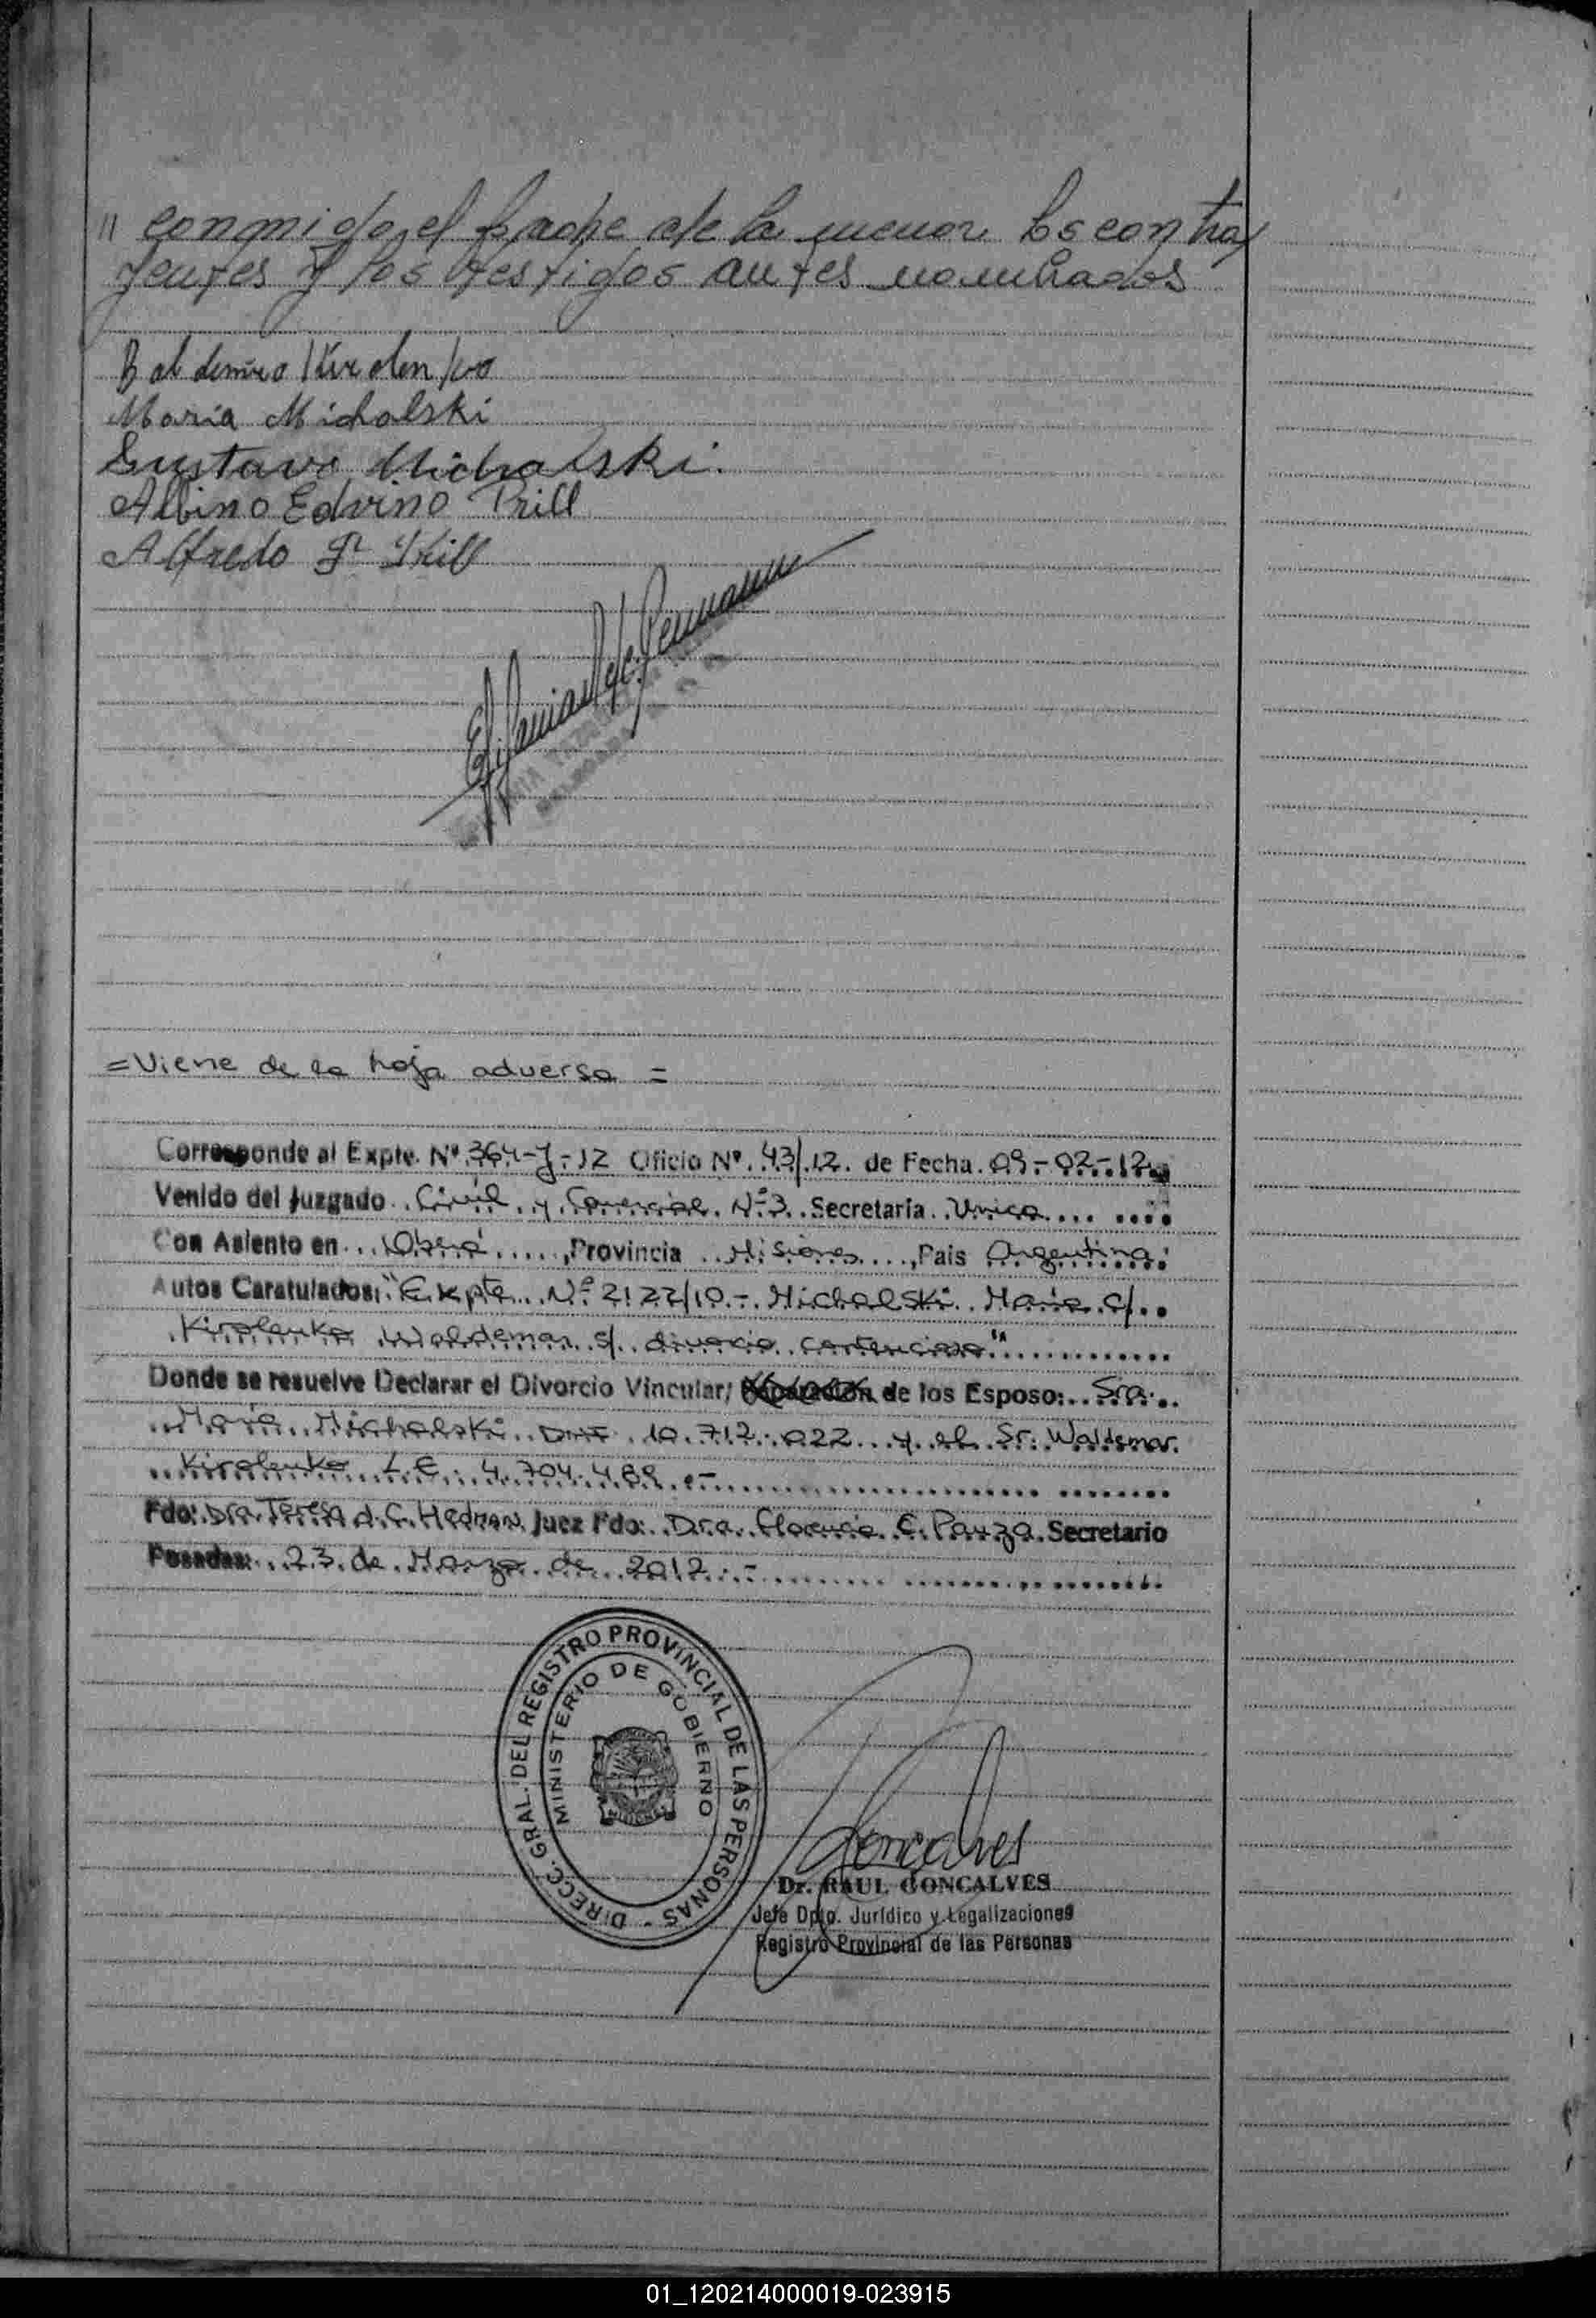 // conmigo, el padre de la menor los contra
yentes y los testigos antes nombrados
Baldemiro Kirolenko
Maria Michalski
Gustavo Michalski.
Albino Edvino Prill
Alfredo Prill
= Viene de la hoja adversa =
Corresponde al Expte. Nº 364-J-12 Oficio Nº. 43/12. de Fecha. 09-02-12
Venido del Juzgado Civil y Comercial Nº 3 Secretaria Unica
Con Asiento en Oberá, Provincia Misiones, Pais Argentina
Autos Caratulados: "Expte. Nº 2122/10.- Michalski Maria c/
Kirolenko Waldemar s/ divorcio contencioso"
Donde se resuelve Declarar el Divorcio Vincular/ Separación de los Esposo: Sra.
Maria Michalski DNI 10.712.022 y el Sr. Waldemar
Kirolenko L.E. 4.704.489.-
Fdo: Dra. Teresa d. C. Hedman Juez Fdo: Dra. Florencia C. Panza Secretario
Posadas: 23 de Marzo de 2012.-
DIRECC. GRAL. DEL REGISTRO PROVINCIAL DE LAS PERSONAS -
MINISTERIO DE GOBIERNO
MISIONES
Goncalves
Dr. RAUL GONCALVES
Jefe Dpto. Jurídico y Legalizaciones
Registro Provincial de las Personas
01_120214000019-023915